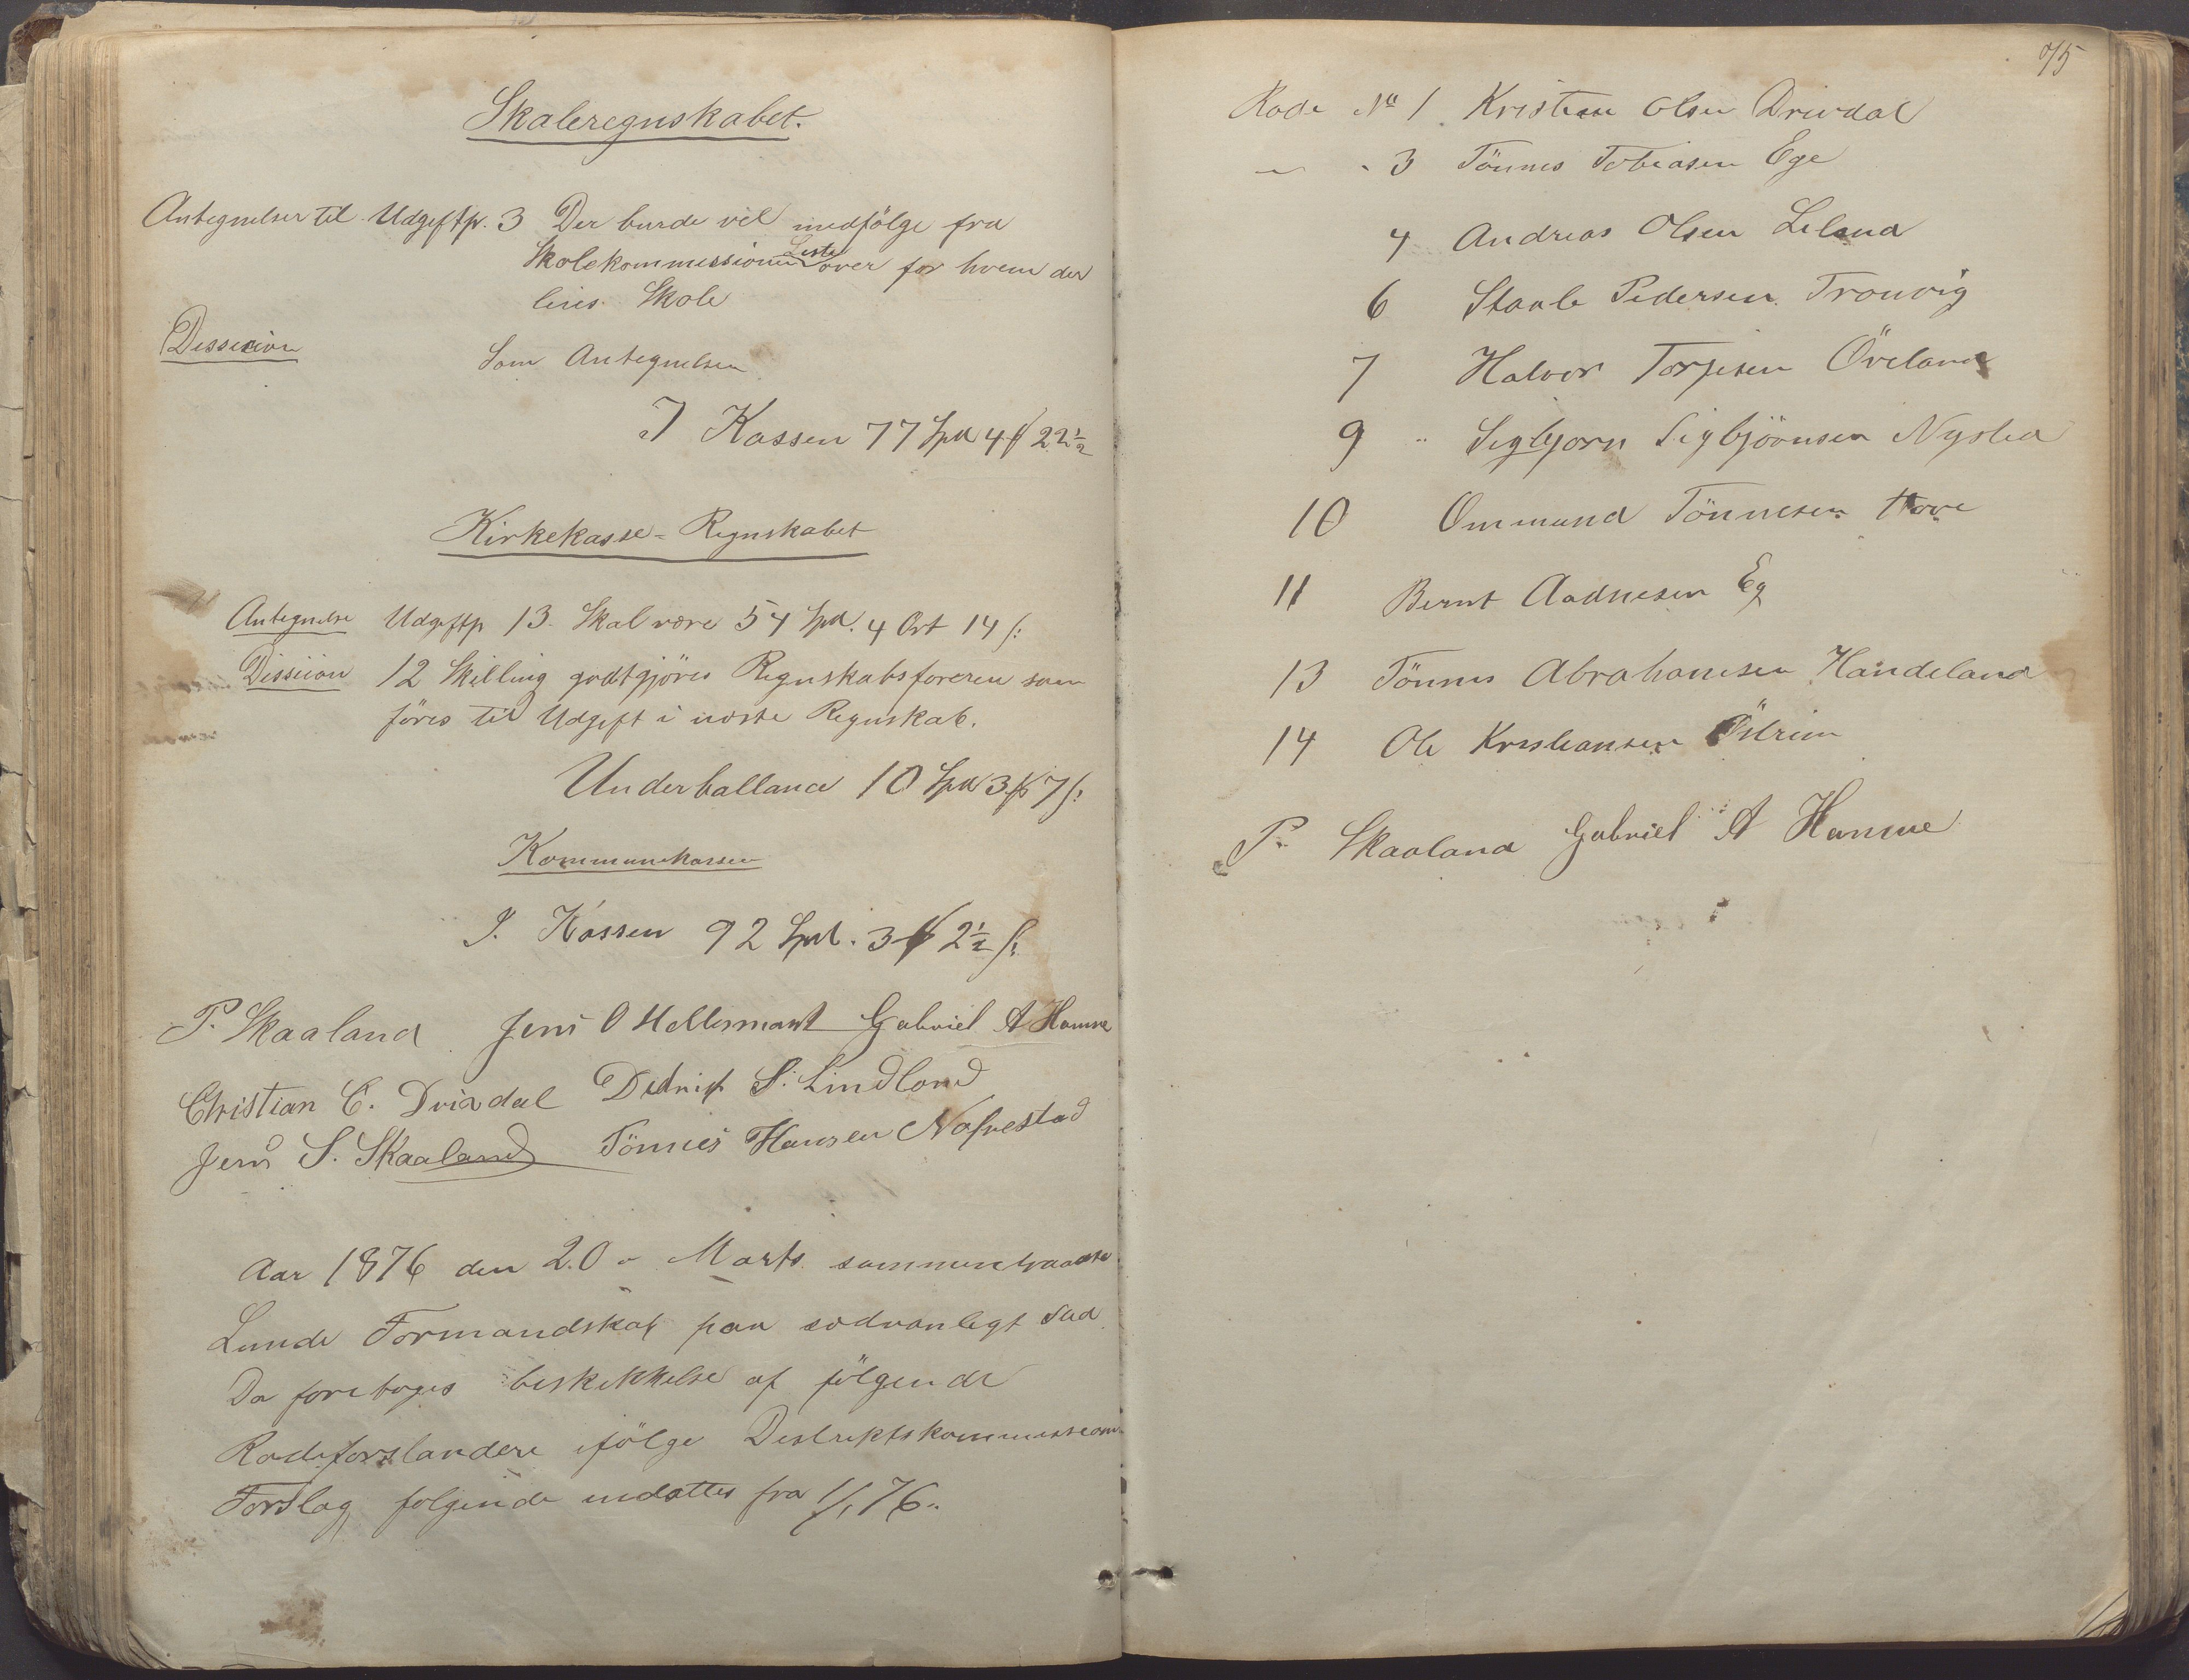 Skoleregnskabet.
Antegnelser til Udgiftp. 3 Der burde vel medfölge fra
Skolekommissionen Liste over for hvem der
leies Skole
Dessision
Som Antegnelsen
I Kassen 77 Spd 4 ß 22½
Kirkekasse-Regnskabet
Antegnelse Udgiftp 13. Skal være 54 Spd. 4 Ort 14 s:
Dissiion 12 Skilling godtgjöres Regnskabsföreren som
föres til Udgift i næste Regnskab.
Underballance 10 Spd 3 ß 7 s:
Kommunekassen
I. Kassen 92 Spd. 3 ß 2½ s:
P. Skaaland Jens O Hellesmark Gabriel A Hamre
Christian C. Drivdal Didrik S. Lindland
Jens S. Skaaland Tönnes Hansen Nafrestad
Aar 1876 den 20 - Marts sammentraadte
Lunde Formandskab paa sædvanligt Sted
Da foretoges beskikkelse af fölgende
Rodeforstandere ifölge Distriktskommissions
Forslag fölgende indsættes fra 1/1 76.
75
Rode No 1 Kristian Olsen Drivdal
" " 3 Tönnes Tobiasen Ege
4 Andreas Olsen Leland
6 Staale Pedersen Tronvig
7 Halvor Torjesen Öveland
9 " Sigbjorn Sigbjörnsen Nysted
10 Ommund Tönnesen Hove
11 Bernt Aadnesen Eg
13 Tönnes Abrahamsen Handeland
14 Ole Kristiansen Östreim
P. Skaaland Gabriel A Hamre